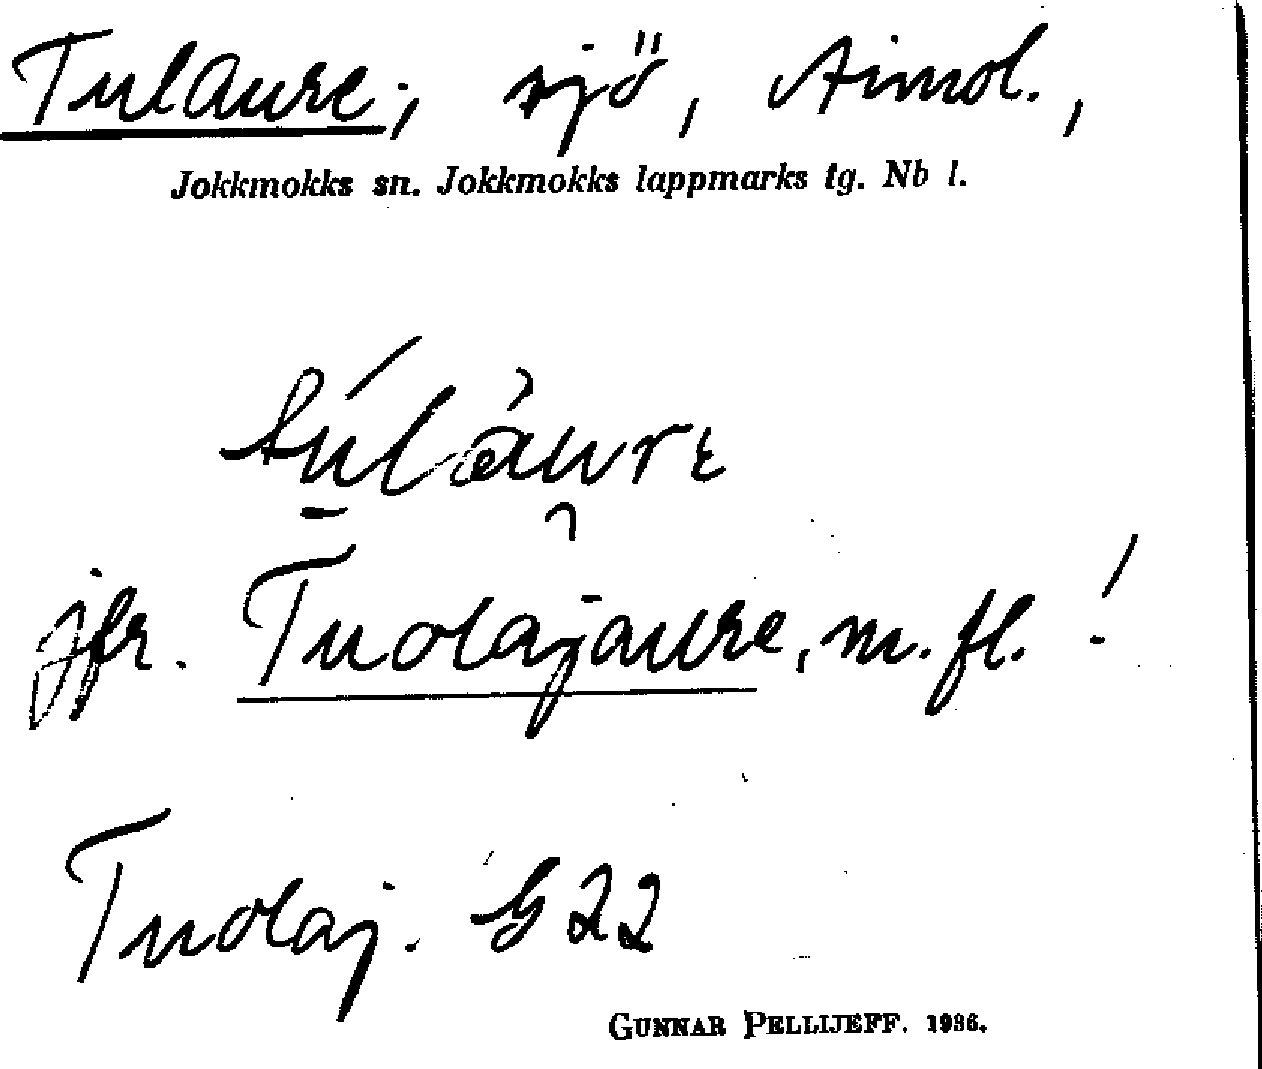 Tulaure, sjö, Aimol.,
Jokkmokks sn. Jokkmokks lappmarks tg. Nb l.
jfr. Tuolajaure, m. fl. !
Tuolaj. G22
GUNNAR PELLIJEFF. 1936.